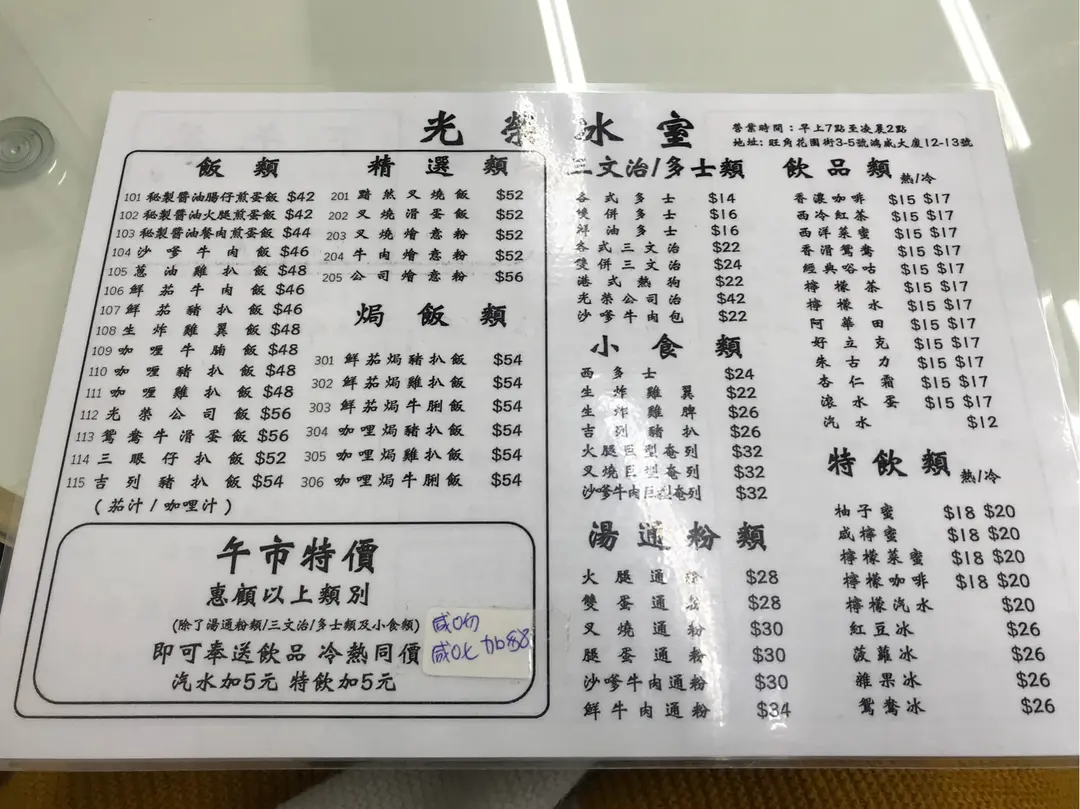 光榮冰室
營業時間：早上7點至凌晨2點
地址: 旺角花園街3-5號鴻威大廈12-13號
飯類
101 秘製醬油腸仔煎蛋飯 $42
102 秘製醬油火腿煎蛋飯 $42
103 秘製醬油餐肉煎蛋飯 $44
104 沙爹牛肉飯 $46
105 蔥油雞扒飯 $48
106 鮮茄牛肉飯 $46
107 鮮茄豬扒飯 $46
108 生炸雞翼飯 $48
109 咖喱牛腩飯 $48
110 咖喱豬扒飯 $48
111 咖喱雞扒飯 $48
112 光榮公司飯 $56
113 鴛鴦牛滑蛋飯 $56
114 三眼仔扒飯 $52
115 吉列豬扒飯 $54
(茄汁/咖哩汁)
精選類
201 黯然叉燒飯 $52
202 叉燒滑蛋飯 $52
203 叉燒燴意粉 $52
204 牛肉燴意粉 $52
205 公司燴意粉 $56
焗飯類
301 鮮茄焗豬扒飯 $54
302 鮮茄焗雞扒飯 $54
303 鮮茄焗牛脷飯 $54
304 咖哩焗豬扒飯 $54
305 咖哩焗雞扒飯 $54
306 咖哩焗牛脷飯 $54
午市特價
惠顧以上類別
(除了湯通粉類/三文治/多士類及小食類)
即可奉送飲品 冷熱同價
汽水加5元 特飲加5元
咸
咸 加$8
三文治/多士類
各式多士 $14
雙併多士 $16
鮮油多士 $16
各式三文治 $22
雙併三文治 $24
港式熱狗 $22
光榮公司治 $42
沙爹牛肉包 $22
小食類
西多士 $24
生炸雞翼 $22
生炸雞髀 $26
吉列豬扒 $26
火腿巨型奄列 $32
叉燒巨型奄列 $32
沙爹牛肉巨型奄列 $32
湯通粉類
火腿通粉 $28
雙蛋通粉 $28
叉燒通粉 $30
腿蛋通粉 $30
沙爹牛肉通粉 $30
鮮牛肉通粉 $34
飲品類 熱/冷
香濃咖啡 $15 $17
西冷紅茶 $15 $17
西洋菜蜜 $15 $17
香滑鴛鴦 $15 $17
經典唂咕 $15 $17
檸檬茶 $15 $17
檸檬水 $15 $17
阿華田 $15 $17
好立克 $15 $17
朱古力 $15 $17
杏仁霜 $15 $17
滾水蛋 $15 $17
汽水 $12
特飲類 熱/冷
柚子蜜 $18 $20
咸檸蜜 $18 $20
檸檬菜蜜 $18 $20
檸檬咖啡 $18 $20
檸檬汽水 $20
紅豆冰 $26
菠蘿冰 $26
雜果冰 $26
鴛鴦冰 $26